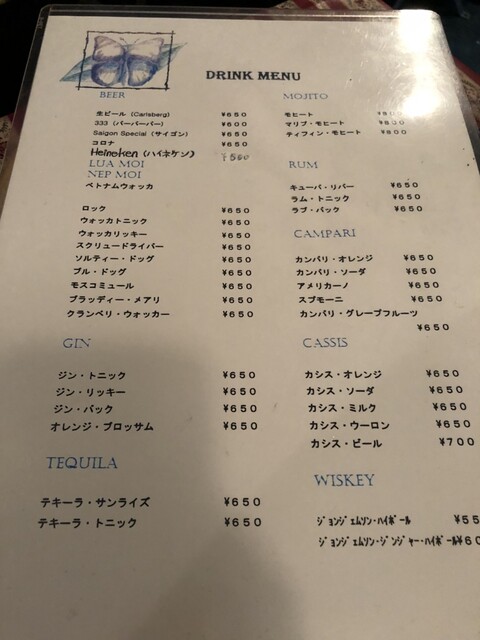 DRINK MENU
BEER
生ビール (Carlsberg) ¥650
333 (バーバーバー) ¥600
Saigon Special (サイゴン) ¥650
コロナ ¥650
Heineken (ハイネケン) ¥500
LUA MOI
NEP MOI
ベトナムウォッカ
ロック ¥650
ウォッカトニック ¥650
ウォッカリッキー ¥650
スクリュードライバー ¥650
ソルティー・ドッグ ¥650
ブル・ドッグ ¥650
モスコミュール ¥650
ブラッディー・メアリ ¥650
クランベリ・ウォッカー ¥650
GIN
ジン・トニック ¥650
ジン・リッキー ¥650
ジン・バック ¥650
オレンジ・ブロッサム ¥650
TEQUILA
テキーラ・サンライズ ¥650
テキーラ・トニック ¥650
MOJITO
モヒート ¥800
マリブ・モヒート ¥800
ティフィン・モヒート ¥800
RUM
キューバ・リバー ¥650
ラム・トニック ¥650
ラブ・バック ¥650
CAMPARI
カンパリ・オレンジ ¥650
カンパリ・ソーダ ¥650
アメリカーノ ¥650
スプモーニ ¥650
カンパリ・グレープフルーツ
¥650
CASSIS
カシス・オレンジ ¥650
カシス・ソーダ ¥650
カシス・ミルク ¥650
カシス・ウーロン ¥650
カシス・ビール ¥700
WISKEY
ジョンジェムソン・ハイボール ¥55
ジョンジェムソン・ジンジャー・ハイボール ¥60